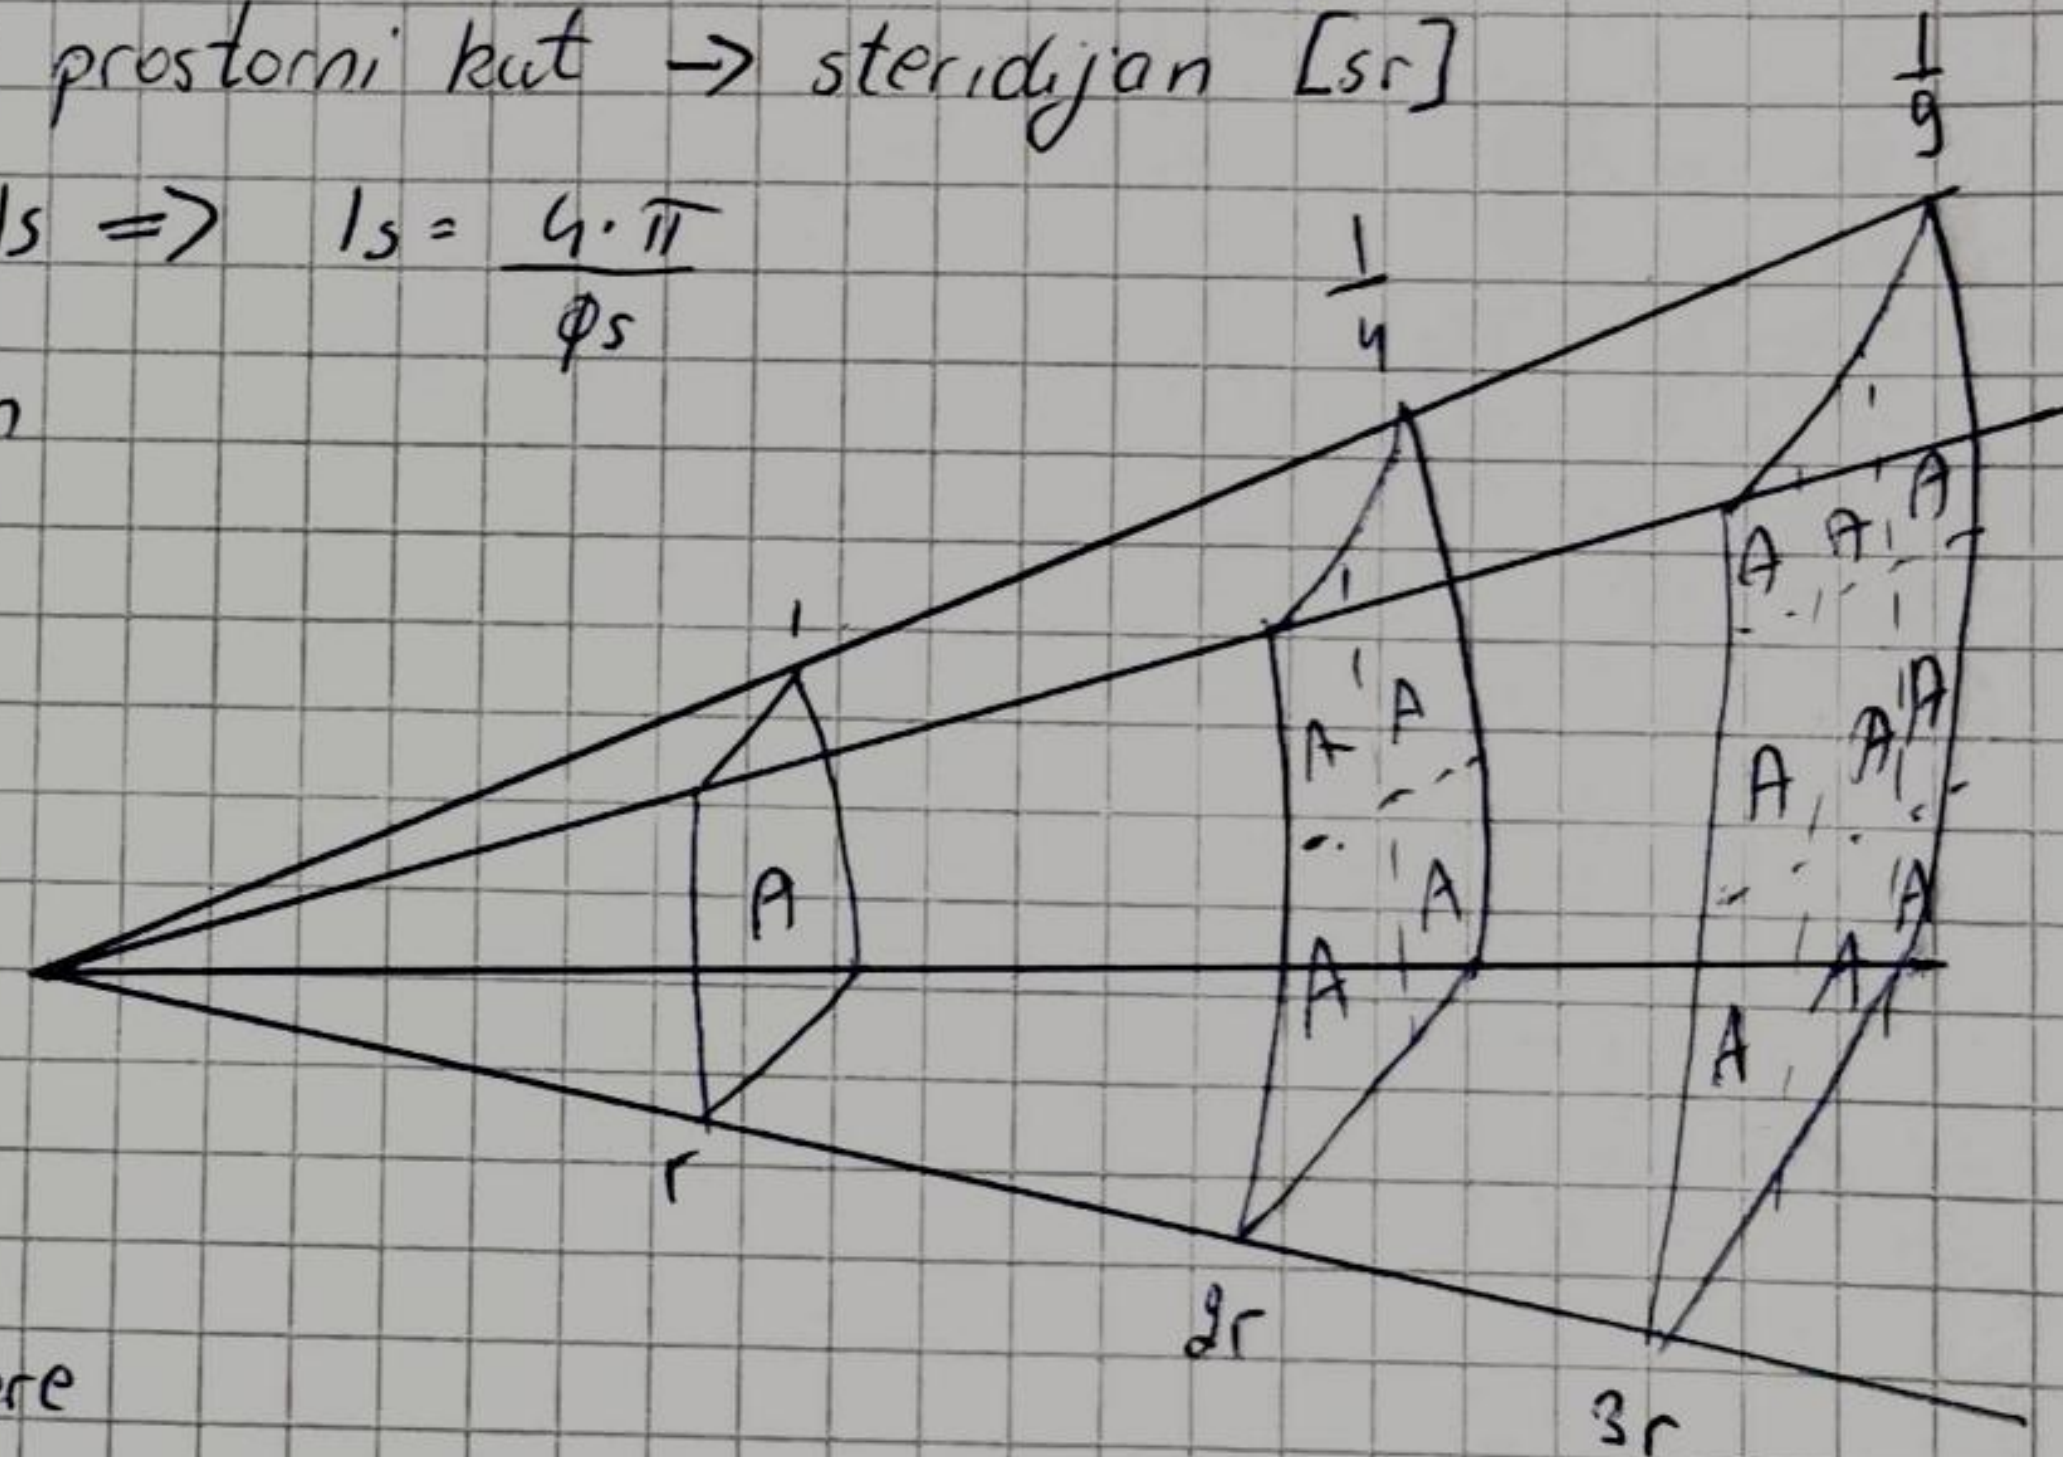 prostorni kut → steridijan [sr]
Is ⇒ Is = 4·π / φs
1
1/4
1/9
A
A A
A A
A A A
A A A
A A A
r
2r
3r